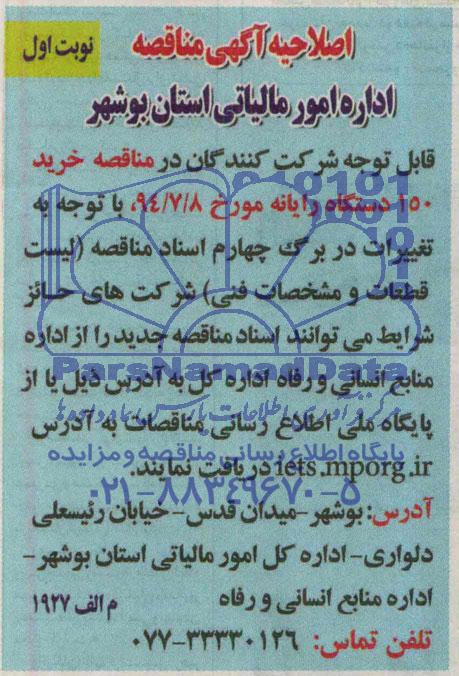 نوبت اول
اصلاحیه آگهی مناقصه
اداره امور مالیاتی استان بوشهر
قابل توجه شرکت کنندگان در مناقصه خرید
۱۵۰ دستگاه رایانه مورخ ۹۴/۷/۸، با توجه به
تغییرات در برگ چهارم اسناد مناقصه (لیست
قطعات و مشخصات فنی) شرکت های حائز
شرایط می توانند اسناد مناقصه جدید را از اداره
منابع انسانی و رفاه اداره کل به آدرس ذیل یا از
پایگاه ملی اطلاع رسانی مناقصات به آدرس
iets.mporg.ir دریافت نمایند.
آدرس: بوشهر -میدان قدس- خیابان رئیسعلی
دلواری- اداره کل امور مالیاتی استان بوشهر-
اداره منابع انسانی و رفاه
م الف ۱۹۲۷
تلفن تماس: ۰۷۷-۳۳۳۳۰۱۲۶
ParsNamadData
پایگاه اطلاع رسانی مناقصه و مزایده
۰۲۱-۸۸۳۴۹۶۷۰-۵